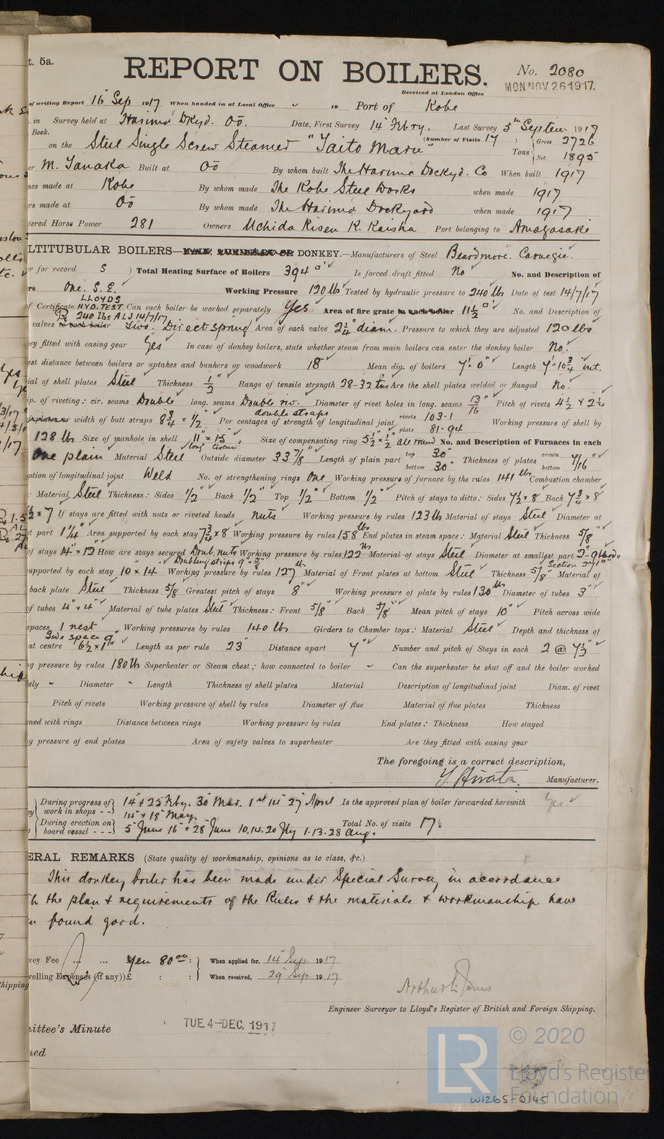 t. 5a.
REPORT ON BOILERS.
No. 2080
Received at London Office
MON NOV 26 1917.
of writing Report 16 Sep 1917 When handed in at Local Office " 10 Port of Kobe
in Survey held at Harima Dkyd. Co. Date, First Survey 14 Febry. Last Survey 5th Septem 1917
Book. (Number of Visits 17 )
on the Steel Single Screw Steamer "Taito Maru" Tons { Gross 2726
Net 1895
er M. Tanaka Built at Do By whom built The Harima Dockyd. Co When built 1917
nes made at Kobe By whom made The Kobe Steel Works when made 1917
rs made at Do By whom made The Harima Dockyard when made 1917
tered Horse Power 281 Owners Uchida Kisen K. Kaisha Port belonging to Amagasaki
LTITUBULAR BOILERS— DONKEY.—Manufacturers of Steel Beardmore. Carnegie.
r for record S ) Total Heating Surface of Boilers 394 □' Is forced draft fitted No No. and Description of
rs One. S.E. Working Pressure 120 lbs Tested by hydraulic pressure to 240 lbs Date of test 14/7/17
LLOYDS HYD. TEST 240 lbs ALJ 14/7/17
f Certificate Can each boiler be worked separately Yes Area of fire grate in each boiler 11½ □' No. and Description of
valves to each boiler Two. Direct spring Area of each valve 2¼" diam. Pressure to which they are adjusted 120 lbs
ey fitted with easing gear Yes In case of donkey boilers, state whether steam from main boilers can enter the donkey boiler No.
est distance between boilers or uptakes and bunkers or woodwork 18" Mean dia. of boilers 7'-0" Length 7'-10¾" int.
ial of shell plates Steel Thickness ½ Range of tensile strength 28-32 tns Are the shell plates welded or flanged No.
ip. of riveting: cir. seams Double long. seams Double riv. double straps Diameter of rivet holes in long. seams 13/16 Pitch of rivets 4½ & 2¼
width of butt straps 8¾ × ½ Per centages of strength of longitudinal joint rivets 103.1 Working pressure of shell by
plate 81.9
128 lb Size of manhole in shell 11" × 15" Size of compensating ring 5½ × ½ all round No. and Description of Furnaces in each
One plain Material Steel Outside diameter 33⅞ Length of plain part top 30" bottom 30" Thickness of plates crown bottom 7/16
ption of longitudinal joint Weld No. of strengthening rings One Working pressure of furnace by the rules 141 lbs Combustion chamber
: Material Steel Thickness: Sides ½ Back ½ Top ½ Bottom ½ Pitch of stays to ditto: Sides 7½ × 8 Back 7¾ × 8
½ × 7 If stays are fitted with nuts or riveted heads nuts Working pressure by rules 123 lb Material of stays Steel Diameter at
st part 1¼ Area supported by each stay 7¾ × 8 Working pressure by rules 158 lbs End plates in steam space: Material Steel Thickness 5/8
of stays 14" × 12 How are stays secured Doub. nuts Working pressure by rules 122 lbs Material of stays Steel Diameter at smallest part
upported by each stay 10 × 14 Working pressure by rules 127 lb Material of Front plates at bottom Steel Thickness 5/8 Material of
back plate Steel Thickness 5/8 Greatest pitch of stays 8" Working pressure of plate by rules 130 lbs Diameter of tubes 3"
of tubes 4" × 4" Material of tube plates Steel Thickness: Front 5/8 Back 5/8 Mean pitch of stays 10" Pitch across wide
spaces 1 nest Working pressures by rules 140 lbs Girders to Chamber tops: Material Steel Depth and thickness of
Side space 9"
at centre 6½ × 1" Length as per rule 23" Distance apart 7" Number and pitch of Stays in each 2 @ 7½"
ng pressure by rules 180 lb Superheater or Steam chest; how connected to boiler " Can the superheater be shut off and the boiler worked
ely " Diameter " Length Thickness of shell plates Material Description of longitudinal joint Diam. of rivet
Pitch of rivets Working pressure of shell by rules Diameter of flue Material of flue plates Thickness
ned with rings Distance between rings Working pressure by rules End plates: Thickness How stayed
g pressure of end plates Area of safety valves to superheater Are they fitted with easing gear
The foregoing is a correct description,
Manufacturer.
During progress of work in shops - - 14 & 25 Febry. 30 Mar. 1st 14th 27 April Is the approved plan of boiler forwarded herewith Yes.
14 & 18 May.
During erection on board vessel - - - 5 June 16 & 28 June 10.14.20 Jly 1.13.28 Aug. Total No. of visits 17
ERAL REMARKS (State quality of workmanship, opinions as to class, &c.)
This donkey boiler has been made under Special Survey in accordance
h the plan & requirements of the Rules & the materials & workmanship have
n found good.
vey Fee ... ... Yen 80.00 : When applied for, 14 Sep. 1917
velling Expenses (if any) £ : : When received, 29 Sep. 1917
Engineer Surveyor to Lloyd's Register of British and Foreign Shipping.
ittee's Minute
TUE 4-DEC. 1917
ned
LR
© 2020
Lloyd's Register
Foundation
W1265-0145